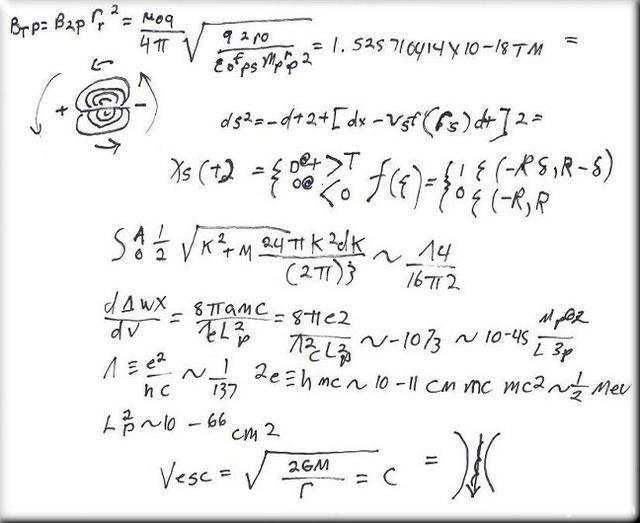 B_TP = B_2P Γ_r² = μ0q / 4π √(q 2 r0 / ε0 f ps Mp r p 2) = 1.525710414 X 10 - 18 TM =
+ -
ds² = -d+2+[dx - Vsf (Γs) dt] 2 =
Xs (+2 = { D@+ >T 0@ <0 f(ξ) = { 1 ξ (-R δ, R - δ) 0 ξ (-R, R
S A 0 1/2 √K² + M 24πK²dK / (2π)3 ~ Λ4 / 16π2
dΔWX / dV = 8πamc / λeL²p = 8πe2 / λ²cL²p ~ -1073 ~ 10-45 MpB2 / L3p
Λ ≡ e² / hc ~ 1/137 2e ≡ hmc ~ 10 - 11 cm mc mc2 ~ 1/2 Mev
L²p ~ 10 - 66 cm2
Vesc = √(2GM / Γ) = C =